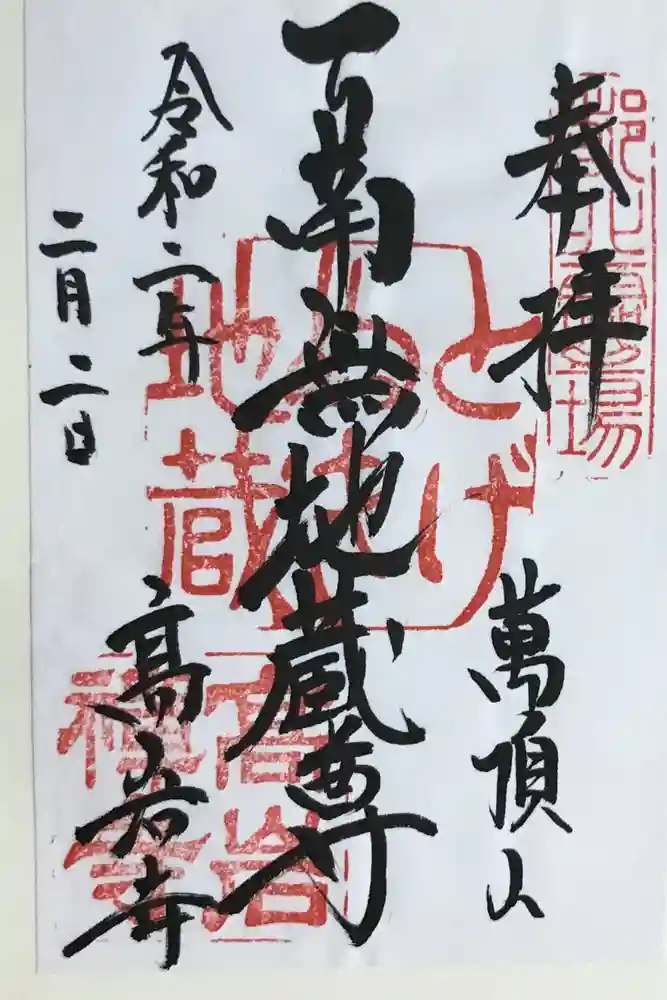 奉拝
萬頂山
南無地蔵尊
令和二年
二月二日
高岩寺
とげ
ぬき
地蔵
高岩
禅寺